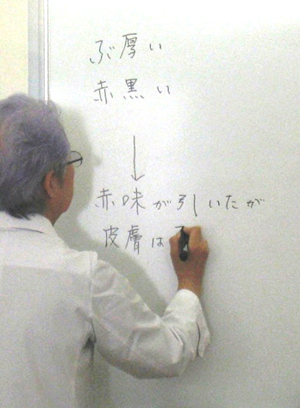 ぶ厚い
赤黒い
↓
赤味が引いたが
皮膚は